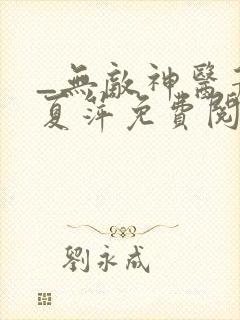 _無敵神醫
夏萍免費閱
劉永成